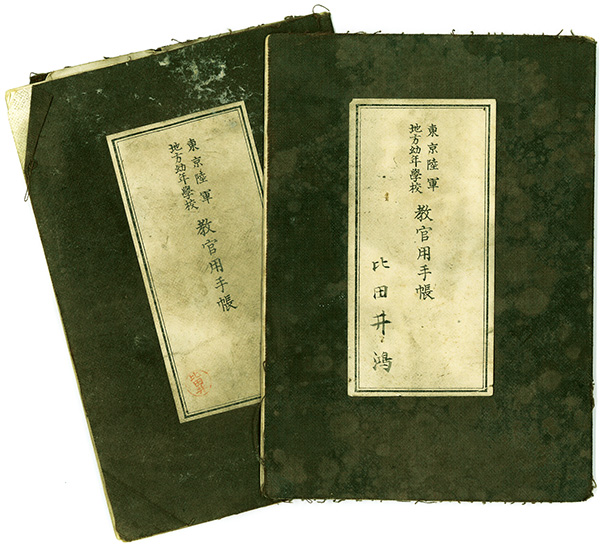 東京陸軍
地方幼年學校
教官用手帳
比田井鴻
東京陸軍
地方幼年學校
教官用手帳
比田井